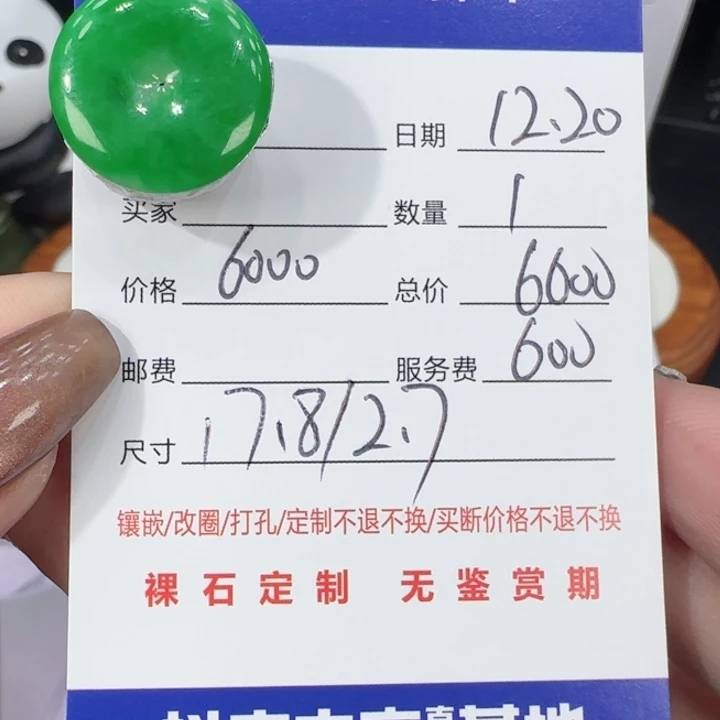 日期 12.20
买家 数量 1
价格 6000 总价 6600
邮费 服务费 600
尺寸 17.8/2.7
镶嵌/改圈/打孔/定制不退不换/买断价格不退不换
裸石定制 无鉴赏期